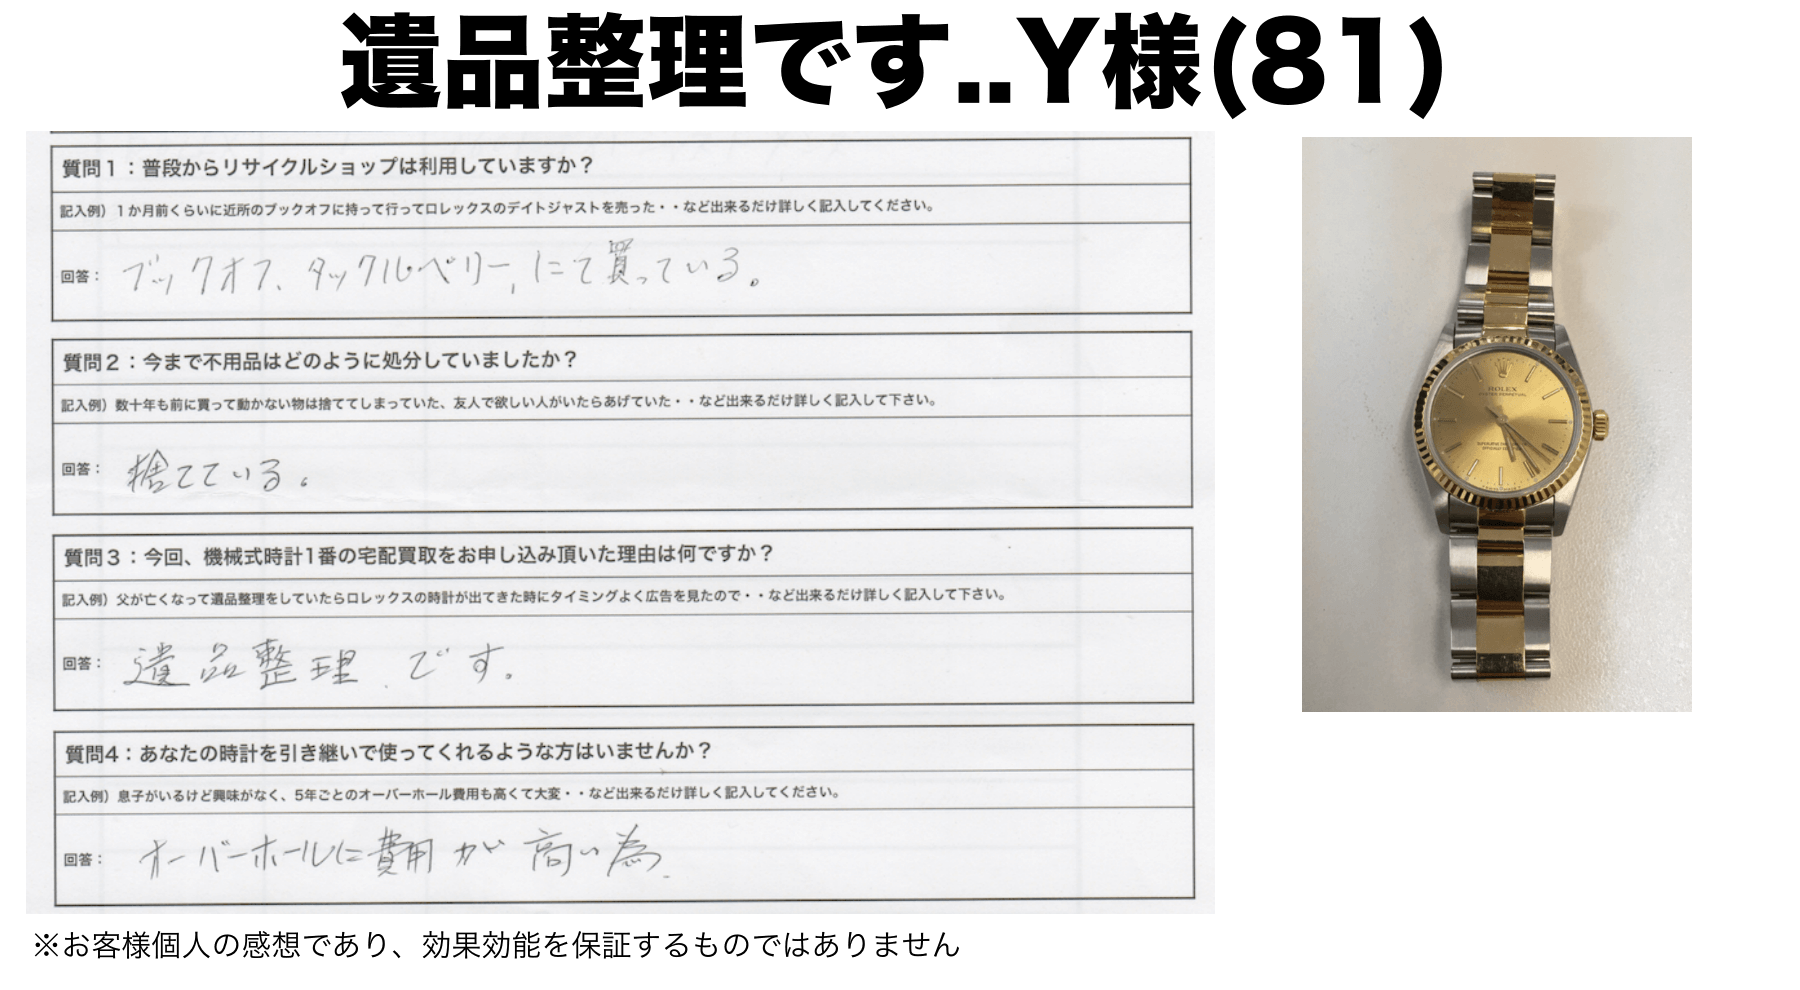 遺品整理です..Y様(81)
質問1：普段からリサイクルショップは利用していますか？
記入例）1か月前くらいに近所のブックオフに持って行ってロレックスのデイトジャストを売った・・など出来るだけ詳しく記入してください。
回答： ブックオフ、タックルベリー、にて買っている。
質問2：今まで不用品はどのように処分していましたか？
記入例）数十年も前に買って動かない物は捨ててしまっていた、友人で欲しい人がいたらあげていた・・など出来るだけ詳しく記入して下さい。
回答： 捨てている。
質問3：今回、機械式時計1番の宅配買取をお申し込み頂いた理由は何ですか？
記入例）父が亡くなって遺品整理をしていたらロレックスの時計が出てきた時にタイミングよく広告を見たので・・など出来るだけ詳しく記入して下さい。
回答： 遺品整理です。
質問4：あなたの時計を引き継いで使ってくれるような方はいませんか？
記入例）息子がいるけど興味がなく、5年ごとのオーバーホール費用も高くて大変・・など出来るだけ詳しく記入してください。
回答： オーバーホールに費用が高い為.
※お客様個人の感想であり、効果効能を保証するものではありません
ROLEX